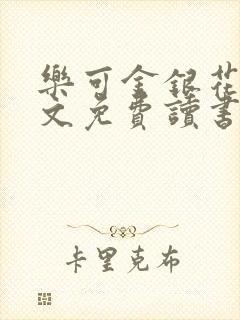 樂可金銀花
文免費讀書
卡里克布